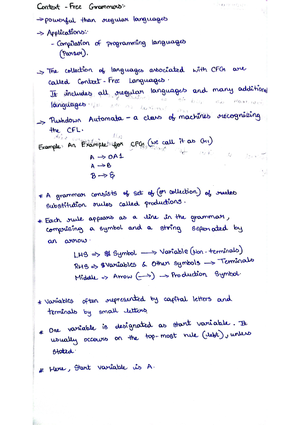 Context - Free Grammars:-
→ powerful than regular languages
→ Applications:-
- Compilation of programming languages
(Parser).
→ The collection of languages associated with CFG are
called Context - Free Languages.
It includes all regular languages and many additional
languages
→ Pushdown Automata - a class of machines recognizing
the CFL.
Example: An Example for CFG, (we call it as G1)
A → 0A1
A → B
B →
* A grammar consists of set of (or collection) of rules
substitution rules called productions.
* Each rule appears as a line in the grammar,
comprising a symbol and a string separated by
an arrow.
LHS → Symbol → Variable (Non-terminals)
RHS → Variables & Other symbols → Terminals
Middle → Arrow (→) → Production Symbol.
* Variables often represented by capital letters and
terminals by small letters
* One variable is designated as start variable. It
usually occurs on the top-most rule (left), unless
stated.
* Here, Start variable is A.